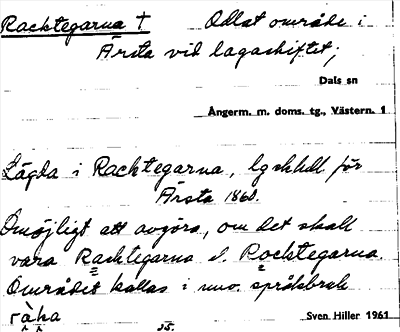 Racktegarna † Odlat område i
Ärsta vid lagaskiftet;
Dals sn
Ångerm. m. doms. tg., Västern. 1
Lägda i Racktegarna, lgskhdl för
Ärsta 1860.
Omöjligt att avgöra, om det skall
vara Racktegarna el. Rocktegarna.
Området kallas i nuv. språkbruk
Sven Hiller 1961